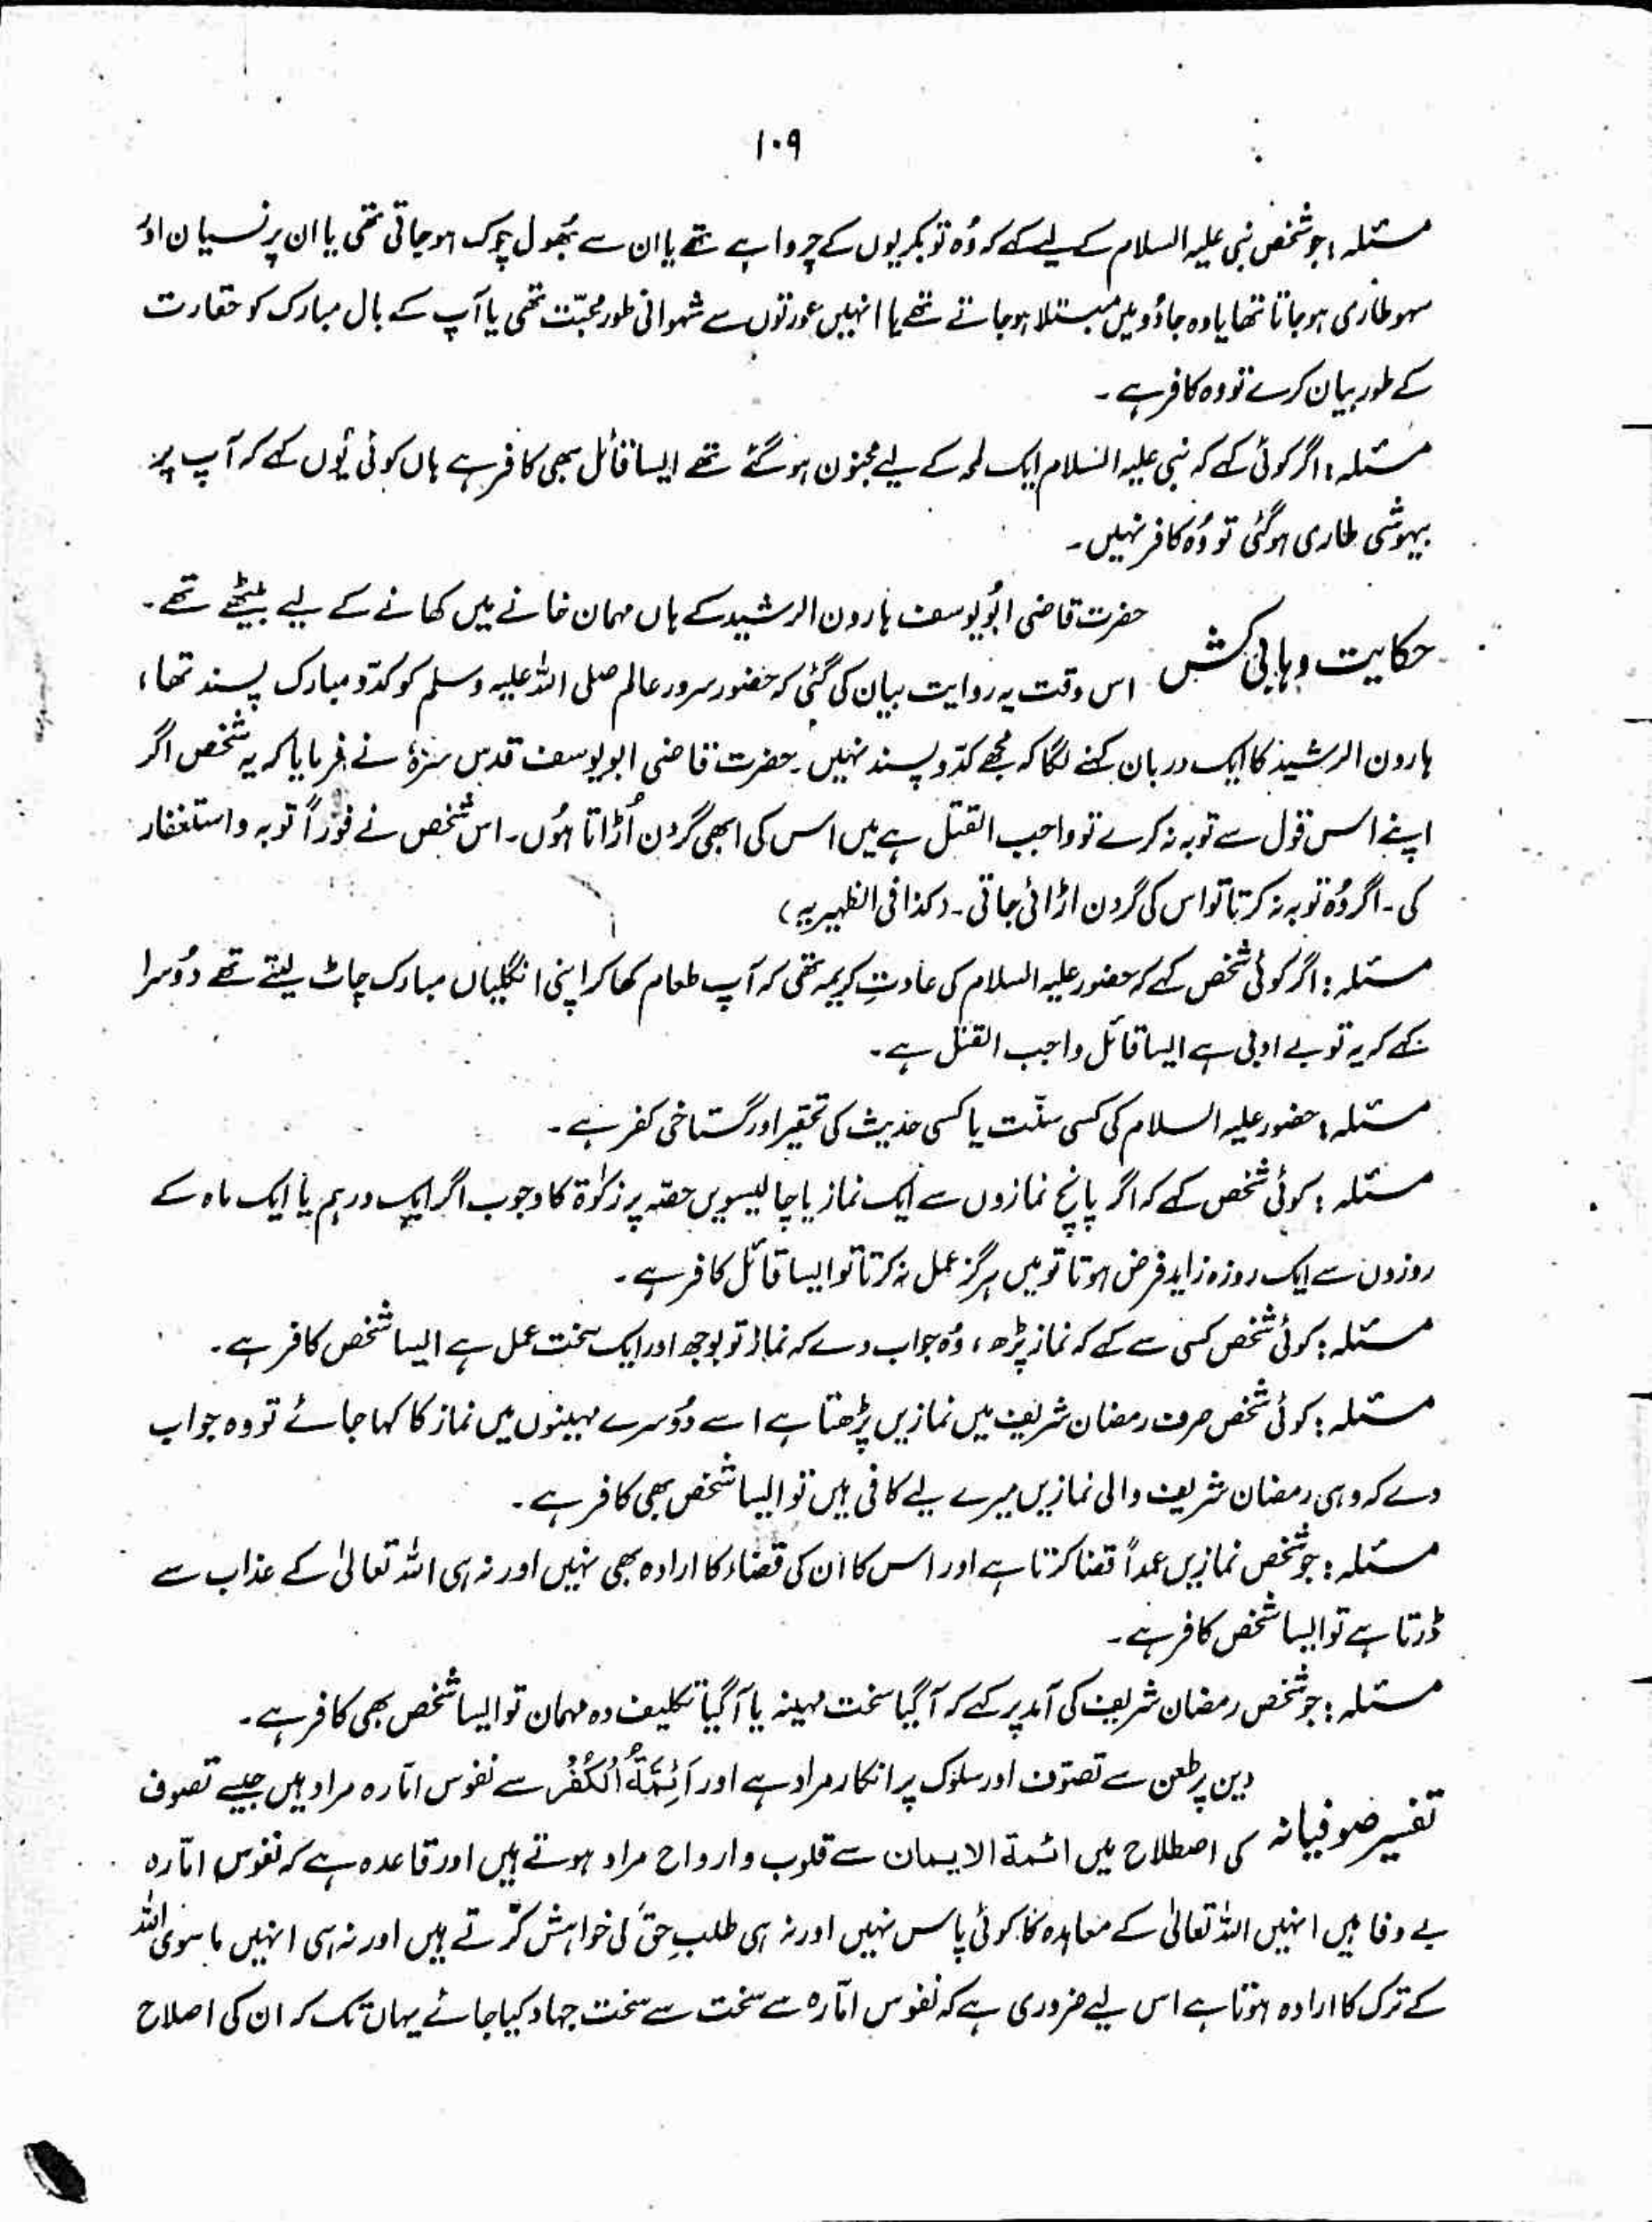 ۱۰۹
مسئلہ: جو شخص نبی علیہ السلام کے لیے کہے کہ وُہ تو بکریوں کے چرواہے تھے یا ان سے بُھول چوک ہو جاتی تھی یا ان پر نسیان اور
سہو طاری ہو جاتا تھا یا وہ جادُو میں مبتلا ہو جاتے تھے یا انہیں عورتوں سے شہوانی طور محبّت تھی یا آپ کے بال مبارک کو حقارت
کے طور بیان کرے تو وہ کافر ہے۔
مسئلہ: اگر کوئی کہے کہ نبی علیہ السلام ایک لمحہ کے لیے مجنون ہو گئے تھے ایسا قائل بھی کافر ہے ہاں کوئی یُوں کہے کہ آپ پر
بیہوشی طاری ہو گئی تو وُہ کافر نہیں۔
حکایت وہابی کش حضرت قاضی ابُو یوسف ہارون الرشید کے ہاں مہمان خانے میں کھانے کے لیے بیٹھے تھے۔
اس وقت یہ روایت بیان کی گئی کہ حضور سرور عالم صلی اللہ علیہ وسلم کو کدّو مبارک پسند تھا،
ہارون الرشید کا ایک دربان کہنے لگا کہ مجھے کدّو پسند نہیں۔ حضرت قاضی ابو یوسف قدس سرّہٗ نے فرمایا کہ یہ شخص اگر
اپنے اس قول سے توبہ نہ کرے تو واجب القتل ہے میں اس کی ابھی گردن اُڑاتا ہُوں۔ اس شخص نے فوراً توبہ و استغفار
کی۔ اگر وُہ توبہ نہ کرتا تو اس کی گردن اڑائی جاتی۔ (کذا فی الظہیریہ)
مسئلہ: اگر کوئی شخص کہے کہ حضور علیہ السلام کی عادتِ کریمہ تھی کہ آپ طعام کھا کر اپنی انگلیاں مبارک چاٹ لیتے تھے دُوسرا
کہے کہ یہ تو بے ادبی ہے ایسا قائل واجب القتل ہے۔
مسئلہ: حضور علیہ السلام کی کسی سنّت یا کسی حدیث کی تحقیر اور گستاخی کفر ہے۔
مسئلہ: کوئی شخص کہے کہ اگر پانچ نمازوں سے ایک نماز یا چالیسویں حصّہ پر زکوٰۃ کا وجوب اگر ایک درہم یا ایک ماہ کے
روزوں سے ایک روزہ زاید فرض ہوتا تو میں ہرگز عمل نہ کرتا تو ایسا قائل کافر ہے۔
مسئلہ: کوئی شخص کسی سے کہے کہ نماز پڑھ، وُہ جواب دے کہ نماز تو بوجھ اور ایک سخت عمل ہے ایسا شخص کافر ہے۔
مسئلہ: کوئی شخص صرف رمضان شریف میں نمازیں پڑھتا ہے اسے دُوسرے مہینوں میں نماز کا کہا جائے تو وہ جواب
دے کہ وہی رمضان شریف والی نمازیں میرے لیے کافی ہیں تو ایسا شخص بھی کافر ہے۔
مسئلہ: جو شخص نمازیں عمداً قضا کرتا ہے اور اس کا ان کی قضاء کا ارادہ بھی نہیں اور نہ ہی اللہ تعالیٰ کے عذاب سے
ڈرتا ہے تو ایسا شخص کافر ہے۔
مسئلہ: جو شخص رمضان شریف کی آمد پر کہے کہ آ گیا سخت مہینہ یا آ گیا تکلیف دہ مہمان تو ایسا شخص بھی کافر ہے۔
تفسیر صوفیانہ دین پر طعن سے تصوّف اور سلوک پر انکار مراد ہے اور اَئِمَّۃُ الْکُفْرِ سے نفوس امّارہ مراد ہیں جیسے تصوف
کی اصطلاح میں ائمۃ الایمان سے قلوب و ارواح مراد ہوتے ہیں اور قاعدہ ہے کہ نفوس امّارہ
بے وفا ہیں انہیں اللہ تعالیٰ کے معاہدہ کا کوئی پاس نہیں اور نہ ہی طلبِ حق کی خواہش کرتے ہیں اور نہ ہی انہیں ماسوی اللہ
کے ترک کا ارادہ ہوتا ہے اس لیے ضروری ہے کہ نفوس امّارہ سے سخت سے سخت جہاد کیا جائے یہاں تک کہ ان کی اصلاح